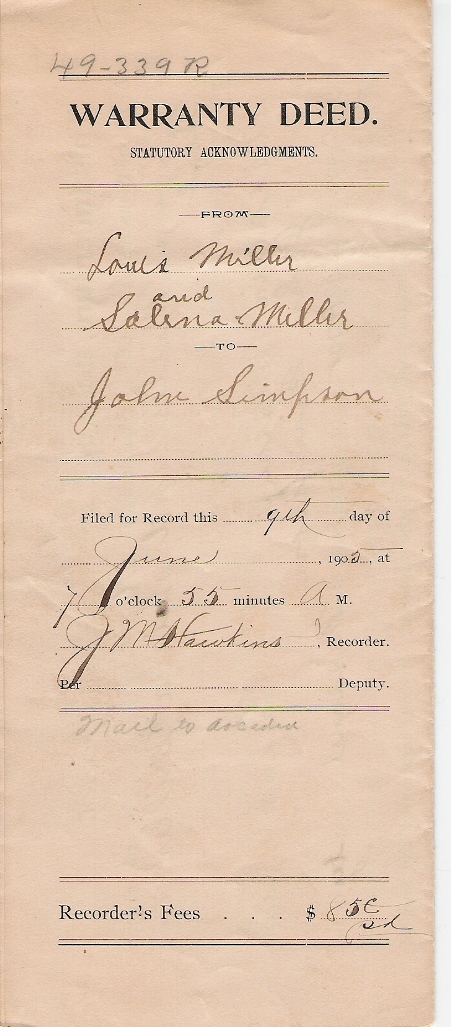 49-339 R
WARRANTY DEED.
STATUTORY ACKNOWLEDGMENTS.
FROM
Louis Miller
and
Salena Miller
TO
John Simpson
Filed for Record this 9th day of
June, 1905, at
7 o'clock 55 minutes A M.
J M Hawkins, Recorder.
Per Deputy.
Mail to Arcadia
Recorder's Fees . . . $ 85c
pd